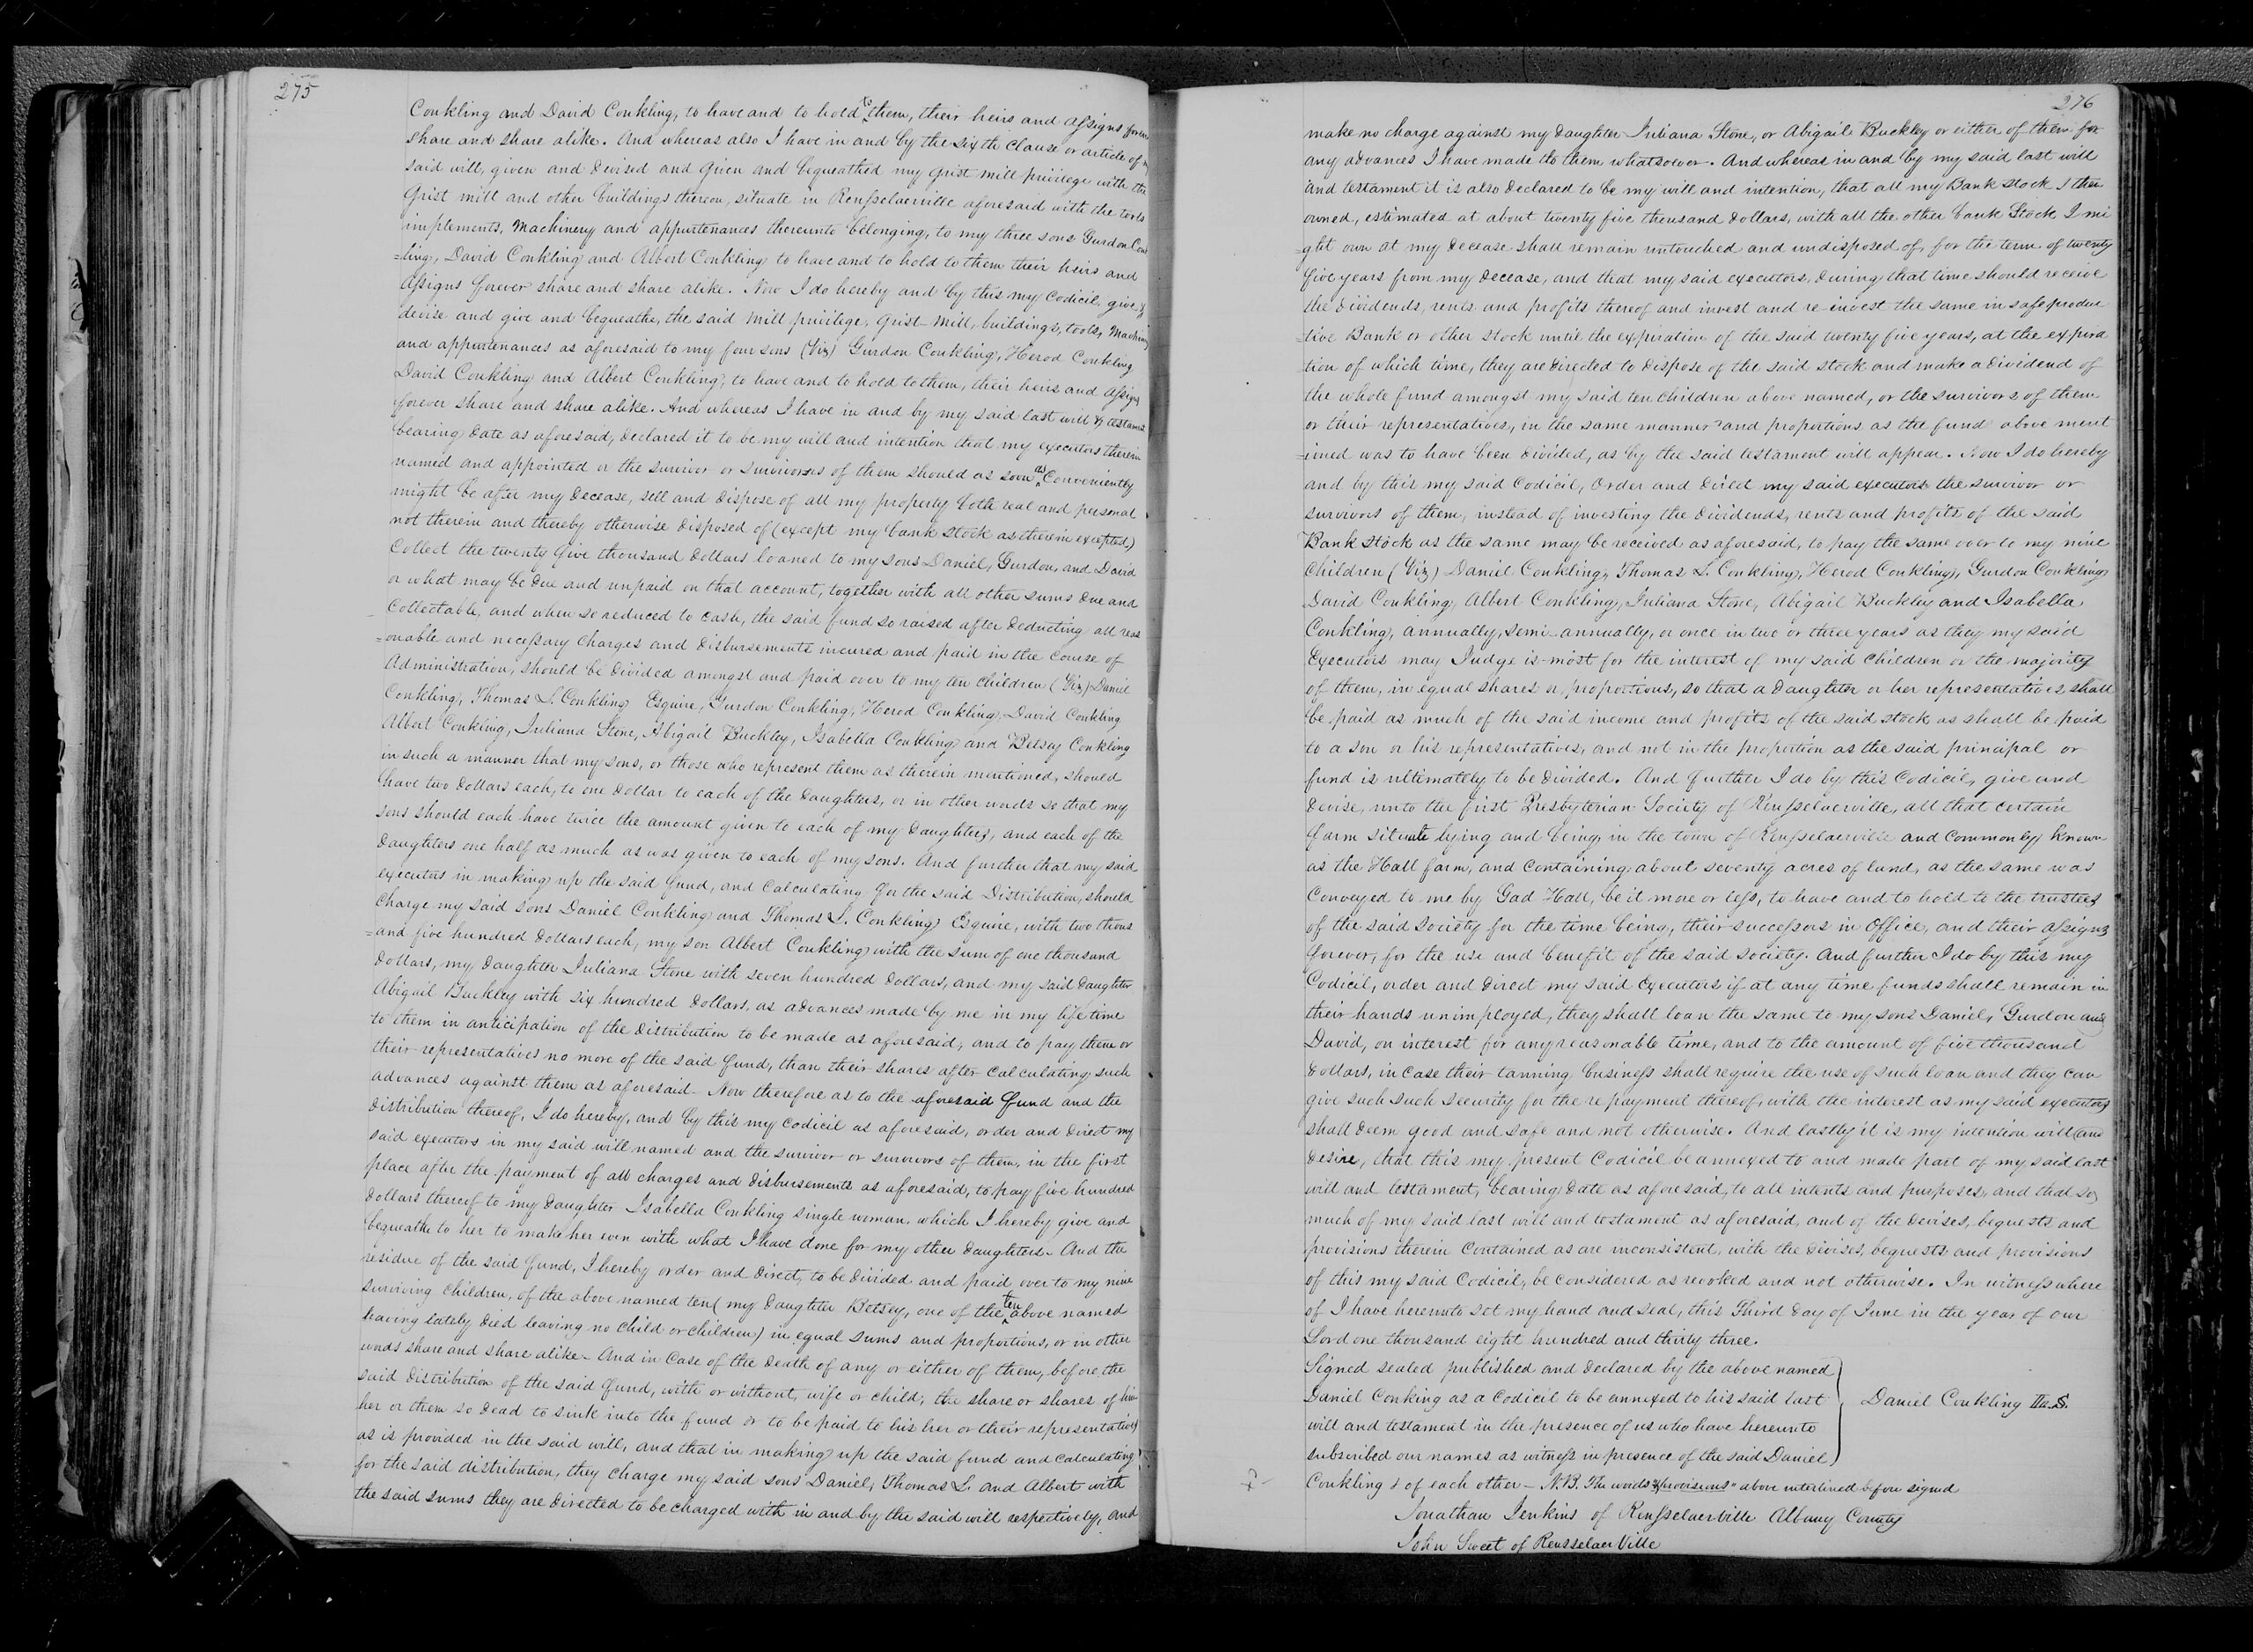 275
Conkling and David Conkling, to have and to hold to them, their heirs and assigns forever
share and share alike. And whereas also I have in and by the sixth clause or article of my
said will, given and devised and given and bequeathed my grist mill privilege with the
Grist mill and other buildings thereon, situate in Rensselaerville aforesaid with the tools
implements, Machinery and appurtenances thereunto belonging, to my three sons Gurdon Conk
=ling, David Conkling and Albert Conkling to have and to hold to them their heirs and
assigns forever share and share alike. Now I do hereby and by this my Codicil, give &
devise and give and bequeathe, the said Mill privilege, Grist-Mill, buildings, tools, Machinery
and appurtenances as aforesaid to my four sons (Viz) Gurdon Conkling, Herod Conkling
David Conkling and Albert Conkling, to have and to hold to them, their heirs and assigns
forever share and share alike. And whereas I have in and by my said last will & testament
bearing date as aforesaid, declared it to be my will and intention that my executors therein
named and appointed or the survivor or survivors of them should as soon as Conveniently
might be after my decease, sell and dispose of all my property both real and personal
not therein and thereby otherwise disposed of (except my bank stock as therein excepted)
Collect the twenty five thousand dollars loaned to my sons Daniel, Gurdon, and David
or what may be due and unpaid on that account, together with all other sums due and
Collectable, and when so reduced to cash, the said fund so raised after deducting all reas
=onable and necessary charges and disbursements incured and paid in the course of
Administration, should be divided amongst and paid over to my ten children (Viz) Daniel
Conkling, Thomas L. Conkling Esquire, Gurdon Conkling, Herod Conkling, David Conkling
Albert Conkling, Juliana Stone, Abigail Buckley, Isabella Conkling and Betsay Conkling
in such a manner that my sons, or those who represent them as therein mentioned, should
have two dollars each, to one dollar to each of the daughters, or in other words so that my
sons should each have twice the amount given to each of my daughters, and each of the
daughters one half as much as was given to each of my sons. And further that my said
executors in making up the said fund, and Calculating for the said distribution, should
Charge my said sons Daniel Conkling and Thomas L. Conkling Esquire, with two thous
=and five hundred dollars each, my son Albert Conkling with the sum of one thousand
dollars, my daughter Juliana Stone with seven hundred dollars, and my said daughter
Abigail Buckley with six hundred dollars, as advances made by me in my life time
to them in anticipation of the distribution to be made as aforesaid, and to pay them or
their representatives no more of the said fund, than their shares after calculating such
advances against them as aforesaid. Now therefore as to the aforesaid fund and the
distribution thereof, I do hereby, and by this my codicil as aforesaid, order and direct my
said executors in my said will named and the survivor or survivors of them, in the first
place after the payment of all charges and disbursements as aforesaid, to pay five hundred
dollars thereof to my daughter Isabella Conkling single woman, which I hereby give and
bequeathe to her to make her even with what I have done for my other daughters. And the
residue of the said fund, I hereby order and direct, to be divided and paid over to my nine
surviving children, of the above named ten (my daughter Betsey, one of the ten above named
having lately died leaving no child or children) in equal sums and proportions, or in other
words share and share alike. And in Case of the death of any or either of them, before the
said distribution of the said fund, with or without, wife or child, the share or shares of him
her or them so dead to sink into the fund or to be paid to his her or their representatives
as is provided in the said will, and that in making up the said fund and calculating
for the said distribution, they charge my said sons Daniel, Thomas L. and Albert with
the said sums they are directed to be charged with in and by the said will respectively, and
276
make no charge against my daughter Juliana Stone, or Abigail Buckley or either of them for
any advances I have made to them whatsoever. And whereas in and by my said last will
and testament it is also declared to be my will and intention, that all my Bank stock I then
owned, estimated at about twenty five thousand dollars, with all the other bank Stock, I mi
=ght own at my decease shall remain untouched and undisposed of, for the term of twenty
five years from my decease, and that my said executors, during that time should receive
the dividends, rents and profits thereof and invest and re-invest the same in safe produc
=tive Bank or other stock until the expiration of the said twenty five years, at the expira
tion of which time, they are directed to dispose of the said stock and make a dividend of
the whole fund amongst my said ten children above named, or the survivors of them
or their representatives, in the same manner and proportions as the fund above ment
=ioned was to have been divided, as by the said testament will appear. Now I do hereby
and by this my said Codicil, Order and direct my said executors the survivor or
survivors of them, instead of investing the dividends, rents and profits of the said
Bank stock as the same may be received as aforesaid, to pay the same over to my nine
Children (Viz) Daniel Conkling, Thomas L. Conkling, Herod Conkling, Gurdon Conkling
David Conkling, Albert Conkling, Juliana Stone, Abigail Buckley and Isabella
Conkling, annually, semi-annually, or once in two or three years as they my said
Executors may Judge is most for the interest of my said children or the majority
of them, in equal shares or proportions, so that a daughter or her representatives shall
be paid as much of the said income and profits of the said stock as shall be paid
to a son or his representatives, and not in the proportion as the said principal or
fund is ultimately to be divided. And further I do by this Codicil, give and
devise, unto the first Presbyterian Society of Rensselaerville, all that certain
farm situate lying and being in the town of Rensselaerville and commonly known
as the Hall farm, and containing about seventy acres of land, as the same was
Conveyed to me by Gad Hall, be it more or less, to have and to hold to the trustees
of the said Society for the time being, their successors in Office, and their assigns
forever, for the use and benefit of the said society. And further I do by this my
Codicil, order and direct my said Executors if at any time funds shall remain in
their hands unimployed, they shall loan the same to my sons Daniel, Gurdon and
David, on interest for any reasonable time, and to the amount of five thousand
dollars, in case their tanning business shall require the use of such loan and they can
give such such security for the repayment thereof, with the interest as my said executors
shall deem good and safe and not otherwise. And lastly it is my intention will and
desire, that this my present Codicil be annexed to and made part of my said last
will and testament, bearing date as aforesaid, to all intents and purposes, and that so
much of my said last will and testament as aforesaid, and of the devises, bequests and
provisions therein contained as are inconsistent, with the divises, bequests and provisions
of this my said Codicil, be considered as revoked and not otherwise. In witness where
of I have hereunto set my hand and seal, this Third day of June in the year of our
Lord one thousand eight hundred and thirty three.
Signed sealed published and declared by the above named
Daniel Conking as a Codicil to be annexed to his said last
Daniel Conkling
will and testament in the presence of us who have hereunto
subscribed our names as witness in presence of the said Daniel
Conkling & of each other - N.B. The words "& provisions" above interlined before signed
Jonathan Jenkins of Rensselaerville Albany County
John Sweet of Rensselaer Ville